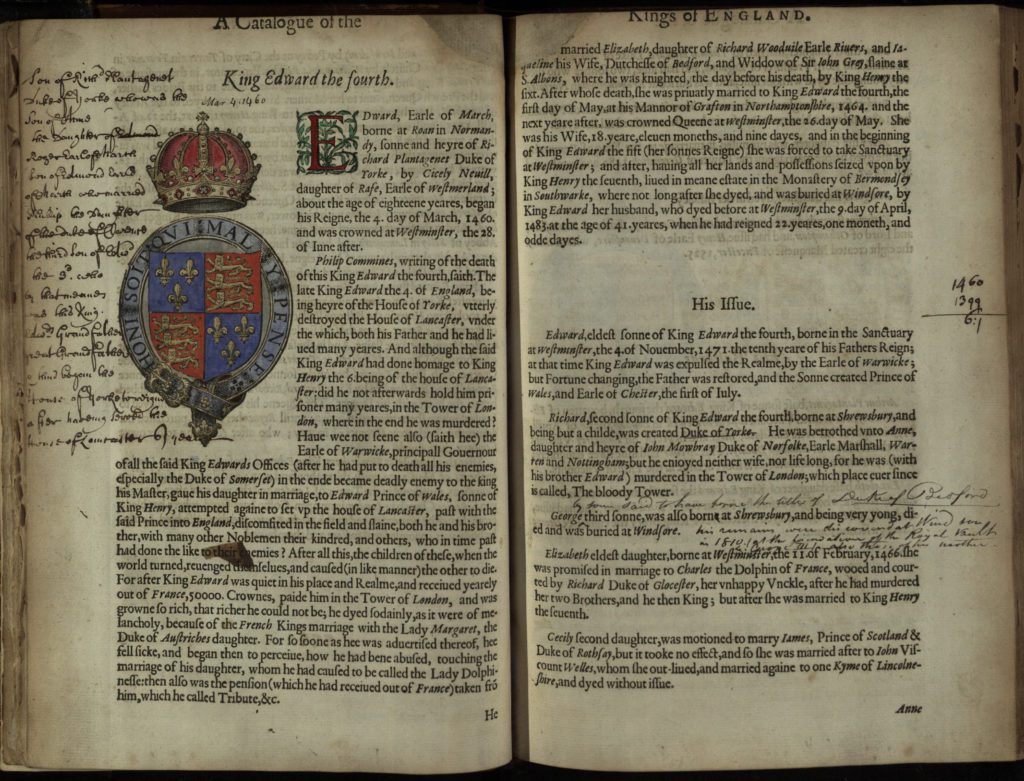 A Catalogue of the
King Edward the fourth.
Mar 4. 1460
HONI SOIT QVI MAL Y PENSE
EDward, Earle of March,
borne at Roan in Norman-
dy, sonne and heyre of Ri-
chard Plantagenet Duke of
Yorke, by Cicely Neuill,
daughter of Rafe, Earle of Westmerland;
about the age of eighteene yeares, began
his Reigne, the 4. day of March, 1460.
and was crowned at Westminster, the 28.
of Iune after.
Philip Commines, writing of the death
of this King Edward the fourth, saith. The
late King Edward the 4. of England, be-
ing heyre of the House of Yorke, vtterly
destroyed the House of Lancaster, vnder
the which, both his Father and he had li-
ued many yeares. And although the said
King Edward had done homage to King
Henry the 6. being of the house of Lanca-
ster; did he not afterwards hold him pri-
soner many yeares, in the Tower of Lon-
don, where in the end he was murdered?
Haue wee not seene also (saith hee) the
Earle of Warwicke, principall Gouernout
of all the said King Edwards Offices (after he had put to death all his enemies,
especially the Duke of Somerset) in the ende became deadly enemy to the king
his Master, gaue his daughter in marriage, to Edward Prince of Wales, sonne of
King Henry, attempted againe to set vp the house of Lancaster, past with the
said Prince into England, discomfited in the field and slaine, both he and his bro-
ther, with many other Noblemen their kindred, and others, who in time past
had done the like to their enemies? After all this, the children of these, when the
world turned, reuenged themselues, and caused (in like manner) the other to die.
For after King Edward was quiet in his place and Realme, and receiued yearely
out of France, 50000. Crownes, paide him in the Tower of London, and was
growne so rich, that richer he could not be; he dyed sodainly, as it were of me-
lancholy, because of the French Kings marriage with the Lady Margaret, the
Duke of Austriches daughter. For so soone as hee was aduertised thereof, hee
fell sicke, and began then to perceiue, how he had bene abused, touching the
marriage of his daughter, whom he had caused to be called the Lady Dolphi-
nesse: then also was the pension (which he had receiued out of France) taken frō
him, which he called Tribute, &c.
He
Kings of ENGLAND.
married Elizabeth, daughter of Richard Wooduile Earle Riuers, and Ia-
queline his Wife, Dutchesse of Bedford, and Widdow of Sir Iohn Grey, slaine at
S. Albons, where he was knighted, the day before his death, by King Henry the
sixt. After whose death, she was priuatly married to King Edward the fourth, the
first day of May, at his Mannor of Grafton in Northamptonshire, 1464. and the
next yeare after, was crowned Queene at Westminster, the 26. day of May. She
was his Wife, 18. yeare, eleuen moneths, and nine dayes, and in the beginning
of King Edward the fift (her sonnes Reigne) she was forced to take Sanctuary
at Westminster; and after, hauing all her lands and possessions seized vpon by
King Henry the seuenth, liued in meane estate in the Monastery of Bermondsey
in Southwarke, where not long after she dyed, and was buried at Windsore, by
King Edward her husband, who dyed before at Westminster, the 9. day of April,
1483. at the age of 41. yeares, when he had reigned 22. yeares, one moneth, and
odde dayes.
1460
1399
61
His Issue.
Edward, eldest sonne of King Edward the fourth, borne in the Sanctuary
at Westminster, the 4. of Nouember, 1471. the tenth yeare of his Fathers Reign;
at that time King Edward was expulsed the Realme, by the Earle of Warwicke;
but Fortune changing, the Father was restored, and the Sonne created Prince of
Wales, and Earle of Chester, the first of Iuly.
Richard, second sonne of King Edward the fourth, borne at Shrewsbury, and
being but a childe, was created Duke of Yorke. He was betrothed vnto Anne,
daughter and heyre of Iohn Mowbray Duke of Norfolke, Earle Marshall, War-
ren and Nottingham; but he enioyed neither wife, nor life long, for he was (with
his brother Edward) murdered in the Tower of London; which place euer since
is called, The bloody Tower.
by some said to have borne the title of Duke of Bedford
George third sonne, was also borne at Shrewsbury, and being very yong, di-
ed and was buried at Windsore. his remains were discovered at Windsor
in 1810 at the foundations of the Royal Vault
Elizabeth eldest daughter, borne at Westminster, the 11. of February, 1466. she
was promised in marriage to Charles the Dolphin of France, wooed and cour-
ted by Richard Duke of Glocester, her vnhappy Vnckle, after he had murdered
her two Brothers, and he then King; but after she was married to King Henry
the seuenth.
Cecily second daughter, was motioned to marry Iames, Prince of Scotland &
Duke of Rothsay, but it tooke no effect, and so she was married after to Iohn Vis-
count Welles, whom she out-liued, and married againe to one Kyme of Lincolne-
shire, and dyed without issue.
Anne